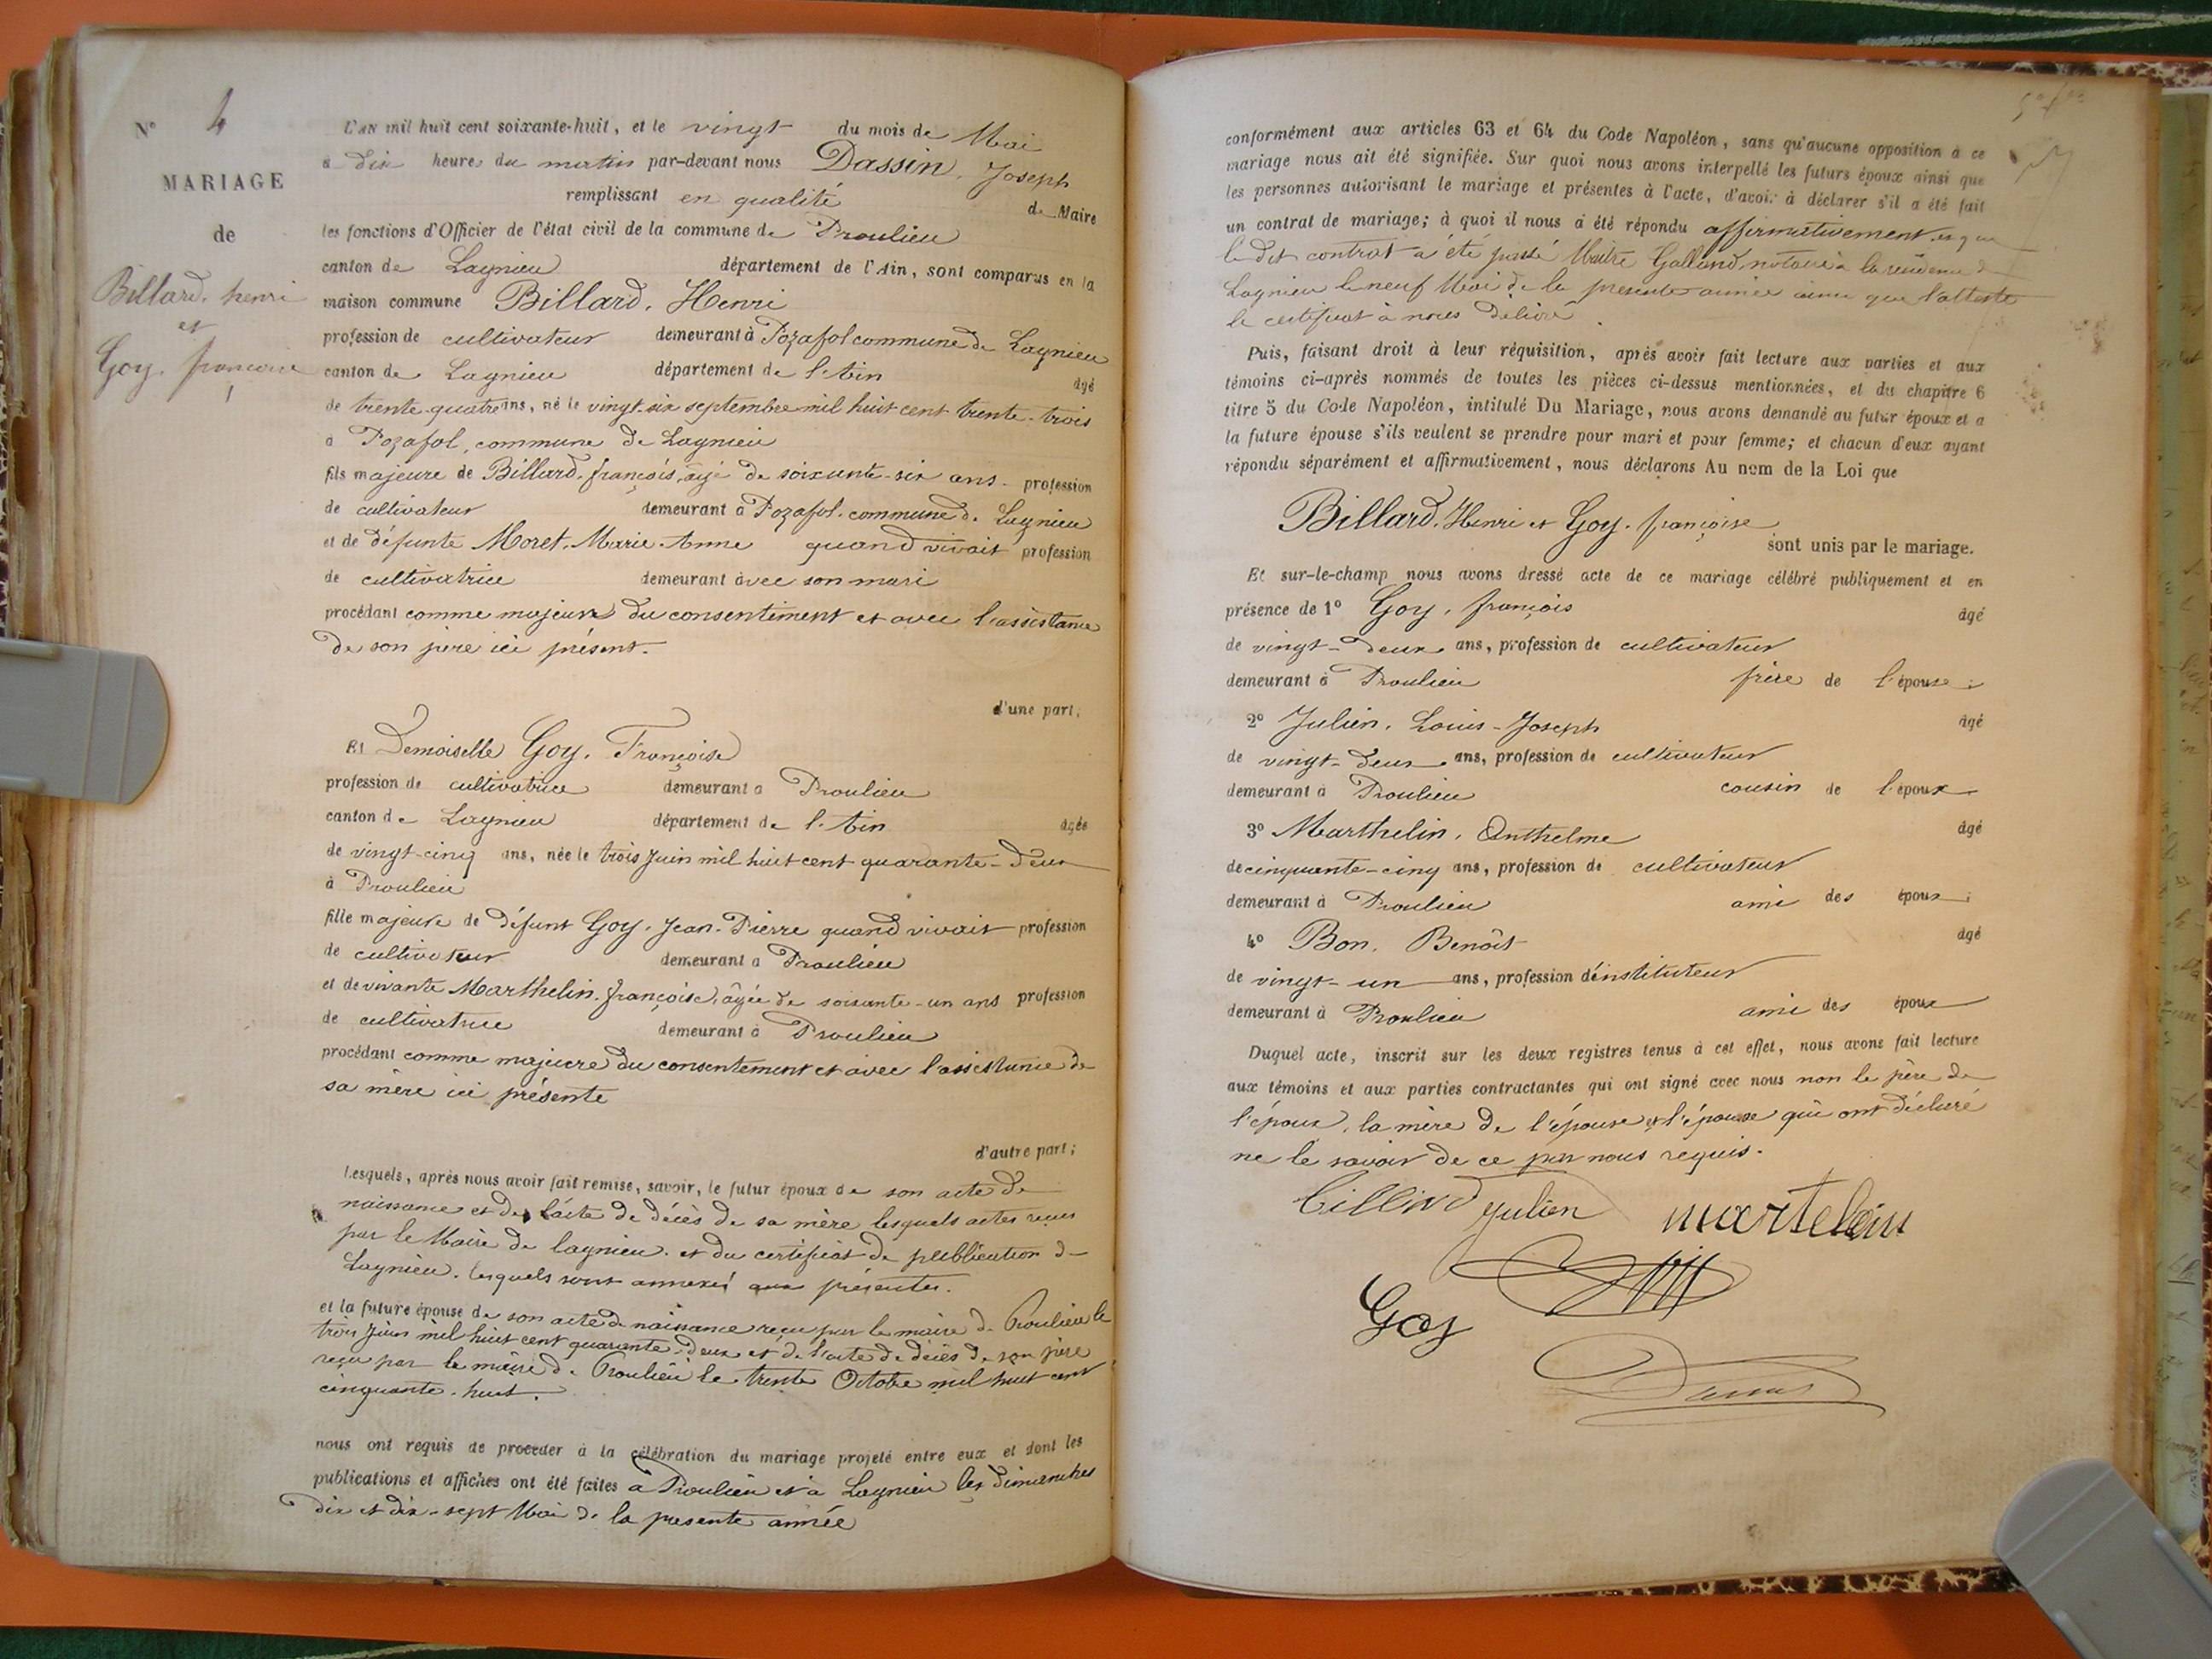 N° 4
MARIAGE
de
Billard, henri
et
Goy, francoise
L'AN mil huit cent soixante-huit, et le vingt du mois de Mai
a dix heures du martin par-devant nous Dassin, Joseph
remplissant en qualité de Maire
les fonctions d'Officier de l'état civil de la commune de Proulieu
canton de Lagnieu département de l'Ain, sont comparus en la
maison commune Billard, Henri
profession de cultivateur demeurant à Pozafol commune de Lagnieu
canton de Lagnieu département de l'Ain âgé
de trente-quatre ans, né le vingt-six septembre mil huit cent trente-trois
à Pozafol, commune de Lagnieu
fils majeure de Billard, françois, âgé de soixante-six ans profession
de cultivateur demeurant à Pozafol, commune de Lagnieu
et de défunte Moret, Marie-Anne quand vivait profession
de cultivatrice demeurant avec son mari
procédant comme majeure du consentiment et avec l'assistance
de son père ici présent.
d'une part;
Et Demoiselle Goy, Françoise
profession de cultivatrice demeurant a Proulieu
canton de Lagnieu département de l'Ain âgée
de vingt-cinq ans, née le trois Juin mil huit cent quarante-deux
à Proulieu
fille majeure de défunt Goy, Jean-Pierre quand vivait profession
de cultivateur demeurant a Proulieu
et de vivante Marthelin, françoise, âgée de soixante-un ans profession
de cultivatrice demeurant à Proulieu
procédant comme majeure du consentement et avec l'assistance de
sa mère ici présente
d'autre part;
Lesquels, après nous avoir fait remise, savoir, le futur époux de son acte de
naissance et de l'acte de décès de sa mère lesquels actes reçus
par le Maire de lagnieu, et du certificat de publication de
Lagnieu, lesquels sont annexés aux présentes.
et la future épouse de son acte de naissance reçu par le maire de Proulieu le
trois juin mil huit cent quarante-deux et de l'acte de décès de son père
reçu par le maire de Proulieu le trente Octobre mil huit cent
cinquante-huit.
nous ont requis de procéder à la célébration du mariage projeté entre eux et dont les
publications et affiches ont été faites a Proulieu et à Lagnieu les dimanches
dix et dix-sept Mai de la presente année
conformément aux articles 63 et 64 du Code Napoléon, sans qu'aucune opposition à ce
mariage nous ait été signifiée. Sur quoi nous avons interpellé les futurs époux ainsi que
les personnes autorisant le mariage et présentes à l'acte, d'avoir à déclarer s'il a été fait
un contrat de mariage; à quoi il nous a été répondu affirmativement et que
le dit contrat a été passé Maître Galland, notaire à la résidence de
Lagnieu le neuf Mai de la presente année ainsi que l'atteste
le certificat à nous délivré.
Puis, faisant droit à leur réquisition, après avoir fait lecture aux parties et aux
témoins ci-après nommés de toutes les pièces ci-dessus mentionnées, et du chapitre 6
titre 5 du Code Napoléon, intitulé Du Mariage, nous avons demandé au futur époux et a
la future épouse s'ils veulent se prendre pour mari et pour femme; et chacun d'eux ayant
répondu séparément et affirmativement, nous déclarons Au nom de la Loi que
Billard, Henri et Goy, françoise
sont unis par le mariage.
Et sur-le-champ nous avons dressé acte de ce mariage célébré publiquement et en
présence de 1° Goy, françois âgé
de vingt-deux ans, profession de cultivateur
demeurant à Proulieu frère de l'épouse;
2° Julien, Louis-Joseph âgé
de vingt-deux ans, profession de cultivateur
demeurant à Proulieu cousin de l'époux
3° Marthelin, Anthelme âgé
de cinquante-cinq ans, profession de cultivateur
demeurant à Proulieu ami des époux;
4° Bon, Benoît âgé
de vingt-un ans, profession d'instituteur
demeurant à Proulieu ami des époux
Duquel acte, inscrit sur les deux registres tenus à cet effet, nous avons fait lecture
aux témoins et aux parties contractantes qui ont signé avec nous non le père de
l'époux, la mère de l'épouse et l'épouse qui ont déclaré
ne le savoir de ce par nous requis.
billard Julien martelin
Goy